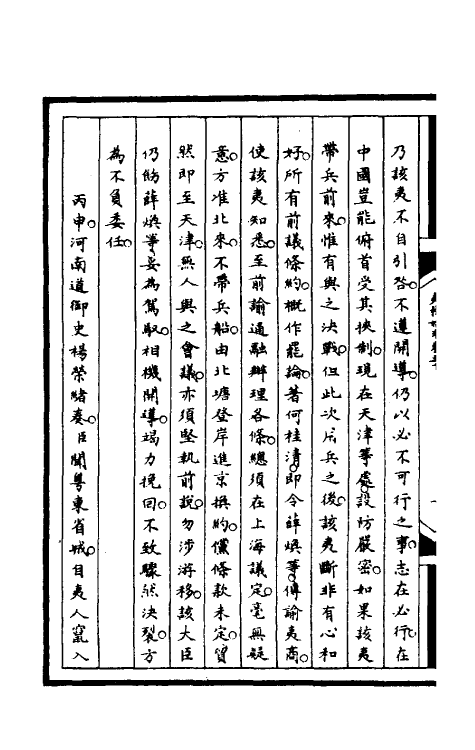 乃該夷不自引咎。不遵開導。仍以必不可行之事。志在必行。在
中國豈能俯首受其挾制。現在天津等處。設防嚴密。如果該夷
帶兵前來。惟有與之決戰。但此次用兵之後。該夷斷非有心和
好。所有前議條約。概作罷論。著何桂清。即令薛煥等。傳諭夷商。
使該夷知悉。至前諭通融辦理各條。總須在上海議定。毫無疑
意。方准北來。不帶兵船。由北塘登岸進京換約。儻條款未定。貿
然即至天津。無人與之會議。亦須堅執前說。勿涉游移。該大臣
仍飭薛煥等妥為駕馭。相機開導。竭力挽回。不致驟然決裂。方
為不負委任。
丙申。河南道御史楊榮緒奏。臣聞粵東省城。自夷人竄入